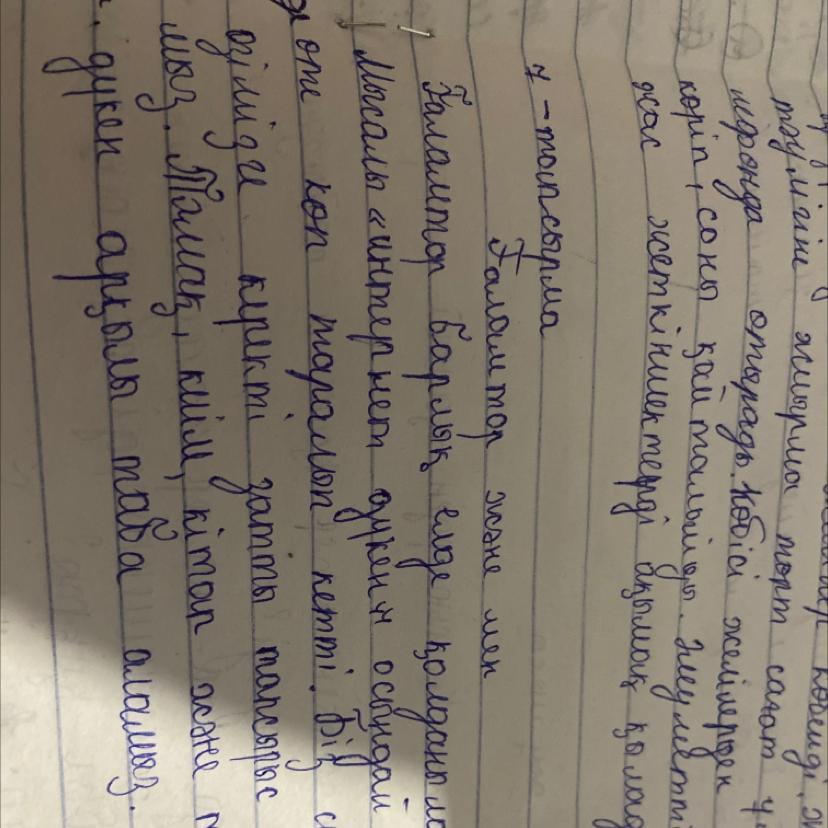 көбейді.
тәулігіне жиырма төрт сағат
мфонда отырады. Көбісі желілерден
көріп, соны қайталайды. Әлеуметті
жас жеткіншектерді ақымақ қылад
7-тапсырма
Ғаламтор және мен
Ғаламтор барлық елде қолданыла
Мысалы "интернет дүкен" осындай
өте көп таралып кетті. Біз
өзімізді керекті затты тапсырыс
мыз. Тамақ, киім, кітап және
дүкен арқылы таба аламыз.